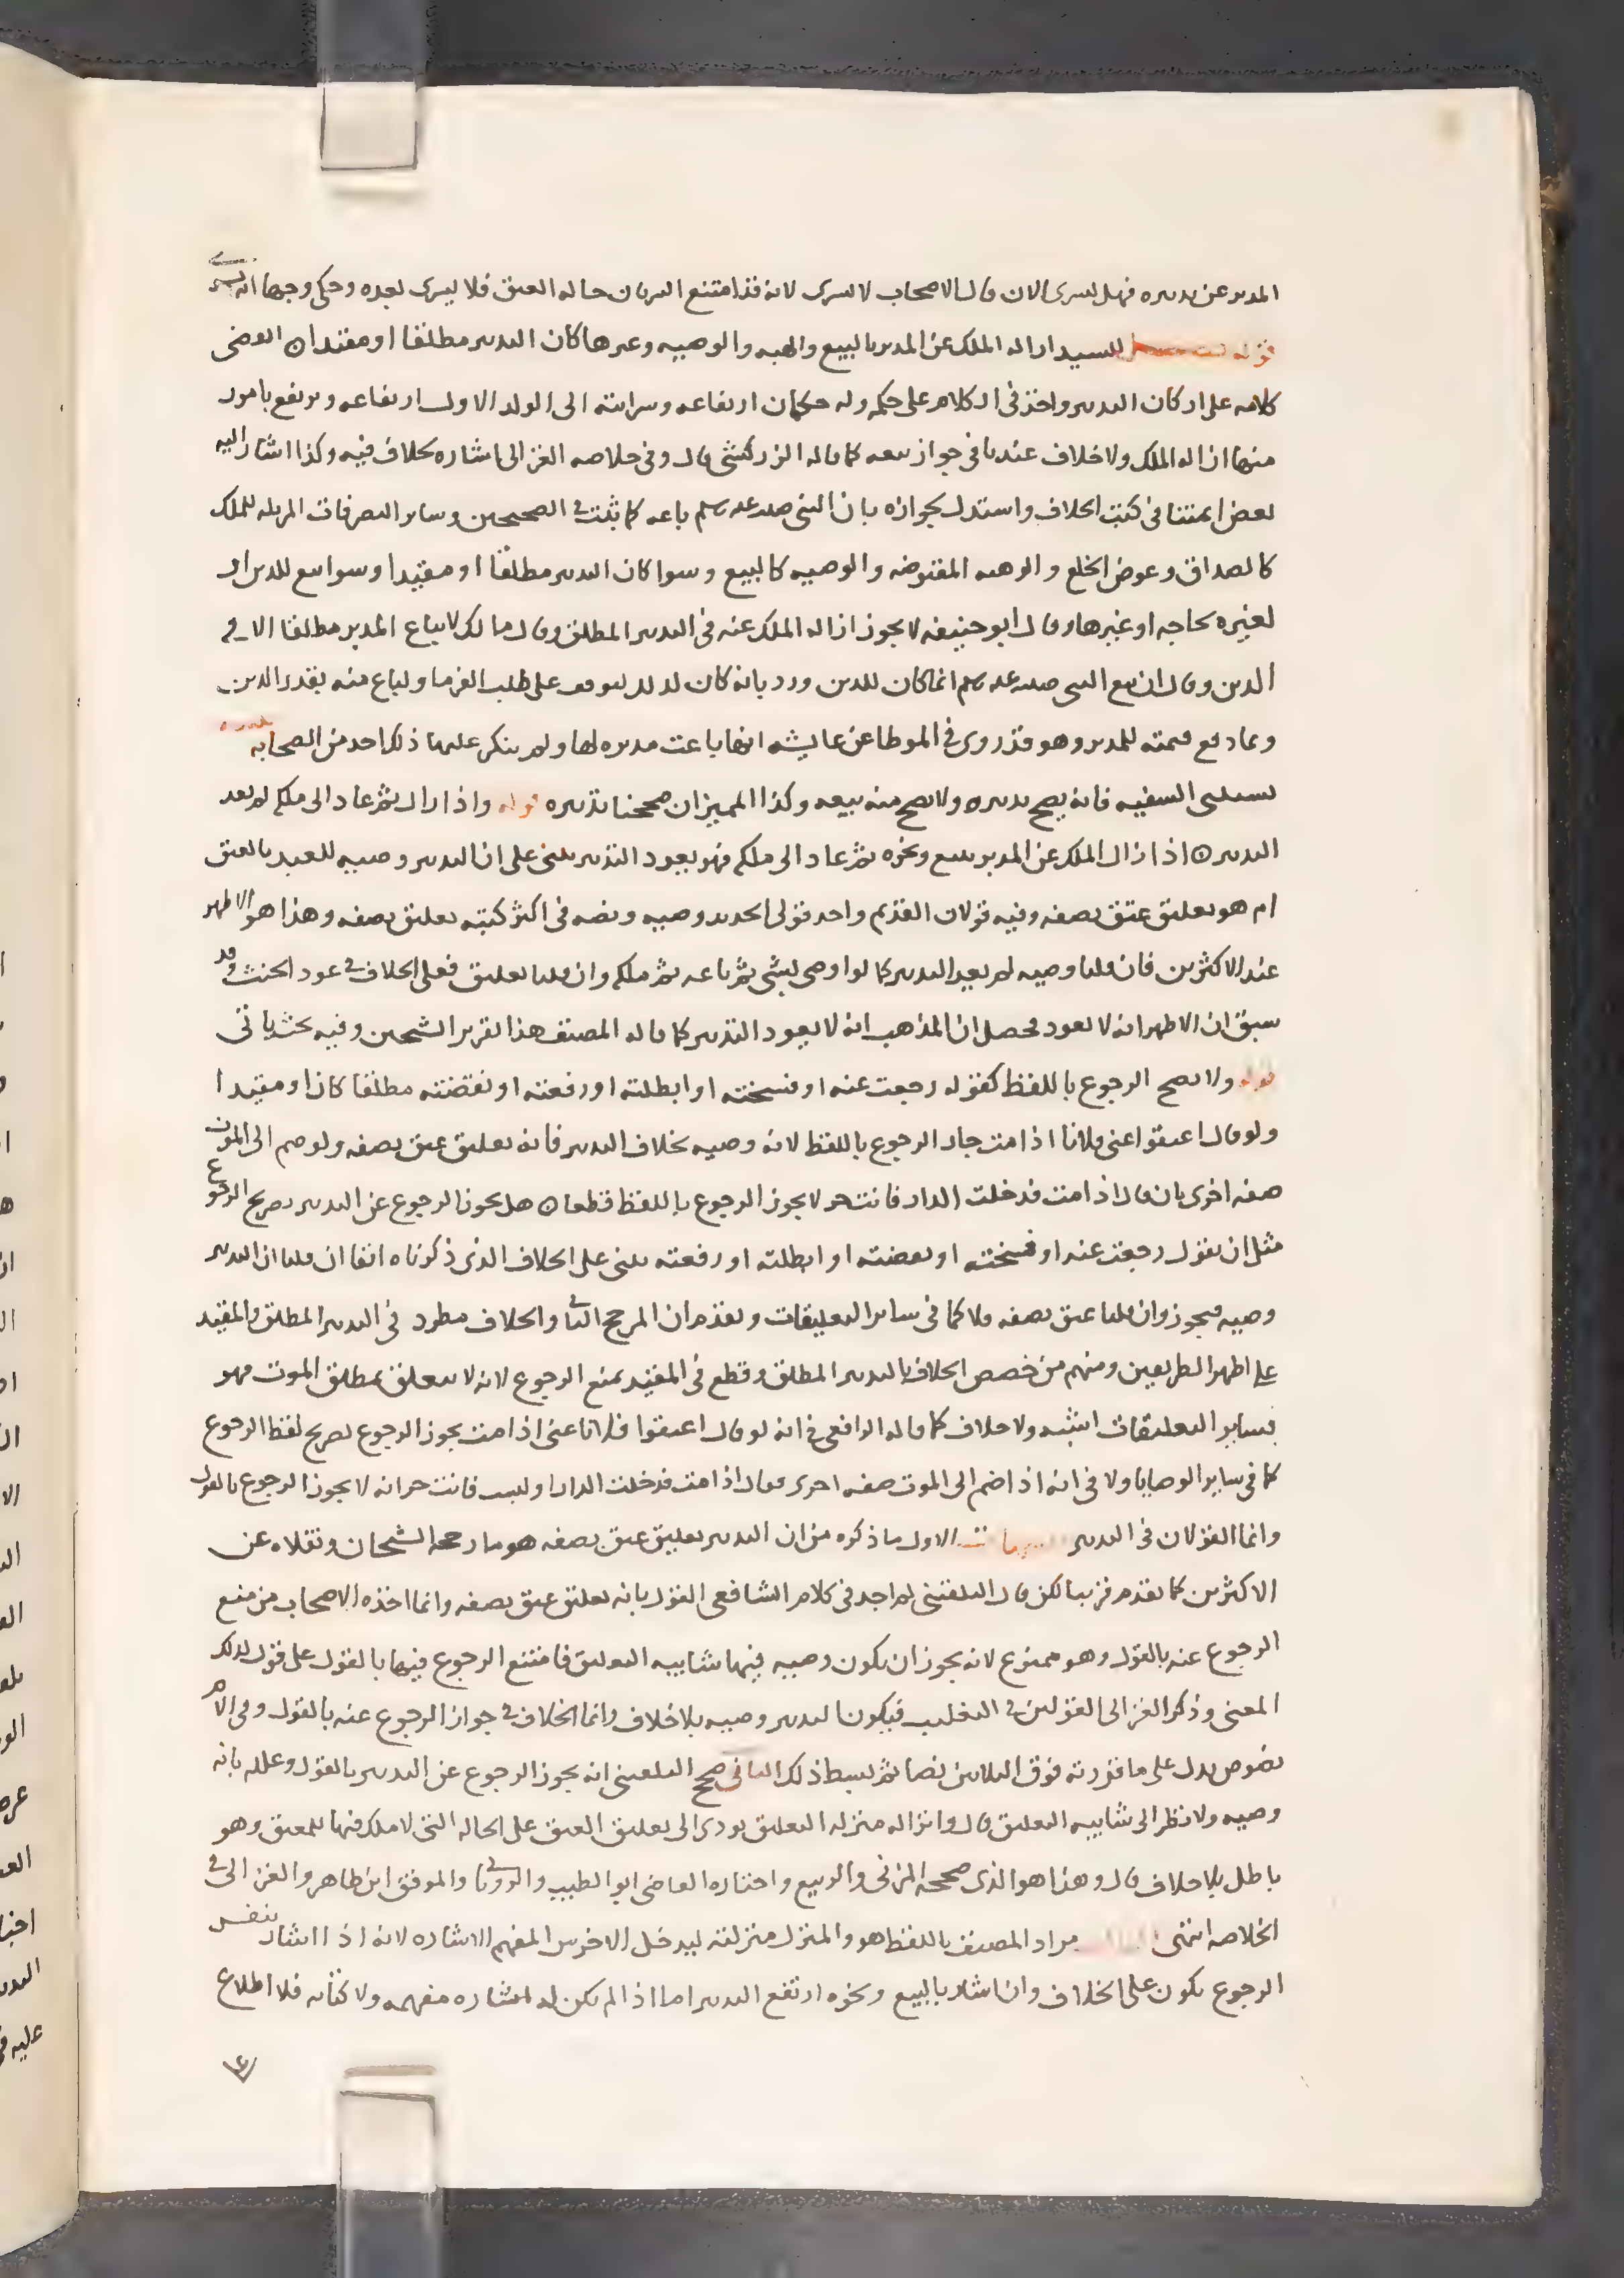 المدبر عن تدبيره فهل يسرى الان قال الاصحاب لا يسرى لانه قد امتنع السريان حاله العتق فلا يسرى بعده وحكى وجها انه يسرى
قوله للسيد ازاله الملك عن المدبر بالبيع والهبه والوصيه وغيرها كان التدبير مطلقا او مقيدا ٥ انقضى
كلامه على اركان التدبير واخذ فى الكلام على حكمه وله حكمان ارتفاعه وسرايته الى الولد الاول ارتفاعه ويرتفع بامور
منها ازاله الملك ولا خلاف عندنا فى جواز بيعه كما قاله الزركشى قال وفى خلاصه الغزالى اشاره بخلاف فيه وكذا اشار اليه
بعض ايمتنا فى كتب الخلاف واستدل لجوازه بان النبى صلى الله عليه وسلم باعه كما ثبت فى الصحيحين وساير التصرفات المزيله للملك
كالصداق وعوض الخلع والوهبه المقبوضه والوصيه كالبيع وسوا كان التدبير مطلقا او مقيدا وسوا بيع للدين او
لغيره لحاجه او غيرها وقال ابو حنيفه لا يجوز ازاله الملك عنه فى التدبير المطلق وقال مالك لا يباع المدبر مطلقا الا فى
الدين وقال ان بيع النبى صلى الله عليه وسلم انما كان للدين ورد بانه كان لذلك لتوقف على طلب الغرما ولباع منه بقدر الدين
ولما دفع قيمته للمدبر وهو قد روى فى الموطا عن عايشه انها باعت مدبره لها ولم ينكر عليها ذلك احد من الصحابه
يستثنى السفيه فانه يصح تدبيره ولا يصح منه بيعه وكذا المميز ان صححنا تدبيره قوله واذا زال ثم عاد الى ملكه لم يعد
التدبير ٥ اذا زال الملك عن المدبر ببيع ونحوه ثم عاد الى ملكه فهو يعود التدبير يبنى على ان التدبير وصيه للعبد بالعتق
ام هو تعليق عتق بصفه وفيه قولان القديم واحد قولى الجديد وصيه ونصه فى اكثر كتبه تعليق بصفه وهذا هو الاظهر
عند الاكثرين فان قلنا وصيه لم يعد التدبير كما لو اوصى بشى ثم باعه ثم ملكه وان قلنا تعليق فعلى الخلاف فى عود الحنث وقد
سبق ان الاظهر انه لا يعود فحصل ان المذهب انه لا يعود التدبير كما قاله المصنف هذا تقرير الشيخين وفيه بحث ياتى
قوله ولا يصح الرجوع باللفظ كقوله رجعت عنه او فسخته او ابطلته او رفعته او نقضته مطلقا كان او مقيدا
ولو قال اعتقوا عنى فلانا اذا مت جاز الرجوع باللفظ لانه وصيه بخلاف التدبير فانه تعليق عتق بصفه ولو ضم الى الموت
صفه اخرى بان قال اذا مت فدخلت الدار فانت حر لا يجوز الرجوع باللفظ قطعا ٥ هل يجوز الرجوع عن التدبير بصريح الرجوع
مثل ان يقول رجعت عنه او فسخته او نقضته او ابطلته او رفعته يبنى على الخلاف الذى ذكرناه انفا ان قلنا ان التدبير
وصيه فيجوز وان قلنا عتق بصفه فلا كما فى ساير التعليقات وتقدم ان المرجح الثانى والخلاف مطرد فى التدبير المطلق والمقيد
على اظهر الطريقين ومنهم من خصص الخلاف بالتدبير المطلق وقطع فى المقيد بمنع الرجوع لانه لا يتعلق بمطلق الموت فهو
بساير التعليقات اشبه ولا خلاف كما قاله الرافعى فى انه لو قال اعتقوا فلانا عنى اذا مت يجوز الرجوع بصريح لفظ الرجوع
كما فى ساير الوصايا ولا فى انه اذا ضم الى الموت صفه اخرى فقال اذا مت فدخلت الدار او لبست فانت حر انه لا يجوز الرجوع بالقول
وانما القولان فى التدبير تنبيهات الاول ما ذكره من ان التدبير تعليق عتق بصفه هو ما رجحه الشيخان ونقلاه عن
الاكثرين كما تقدم قريبا لكن قال البلقينى لم اجد فى كلام الشافعى القول بانه تعليق عتق بصفه وانما اخذه الاصحاب من منع
الرجوع عنه بالقول وهو ممنوع لانه يجوز ان يكون وصيه فيها شايبه التعليق فامتنع الرجوع فيها بالقول على قول لذلك
المعنى وذكر الغزالى القولين فى التغليب فيكون التدبير وصيه بلا خلاف وانما الخلاف فى جواز الرجوع عنه بالقول وفى الام
نصوص تدل على ما قررته فوق الثلاثين نصا ثم بسط ذلك الثانى صحح البلقينى انه يجوز الرجوع عن التدبير بالقول وعلله بانه
وصيه ولا نظر الى شايبه التعليق قال وانزاله منزله التعليق يودى الى تعليق العتق على الحاله التى لا ملك فيها للمعتق وهو
باطل بلا خلاف قال وهذا هو الذى صححه المزنى والربيع واختاره القاضى ابو الطيب والرويانى والموفق ابن طاهر والغزالى فى
الخلاصه انتهى الثالث مراد المصنف باللفظ هو والمنزل منزلته ليدخل الاخرس المفهم الاشاره لانه اذا اشار بنفس
الرجوع يكون على الخلاف وان اشار بالبيع ونحوه ارتفع التدبير اما اذا لم يكن له اشاره مفهمه ولا كتابه فلا اطلاع